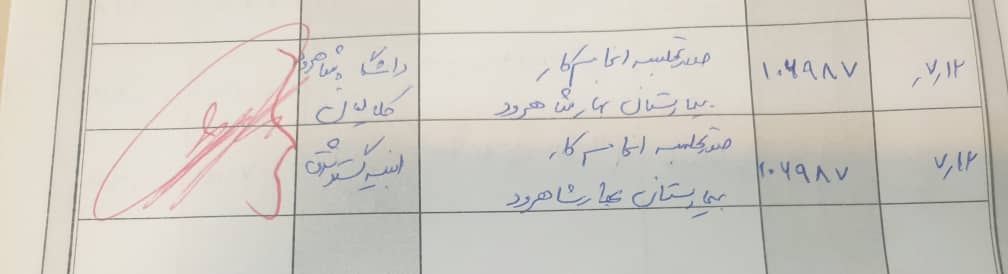 ۷,۱۲
۱۰۶۹۸۷
صورتجلسه انجام کار
بیمارستان بهار شاهرود
دانشگاه شاهرود
۷,۱۲
۱۰۶۹۸۷
صورتجلسه انجام کار
بیمارستان بهار شاهرود
ابنیه گستر